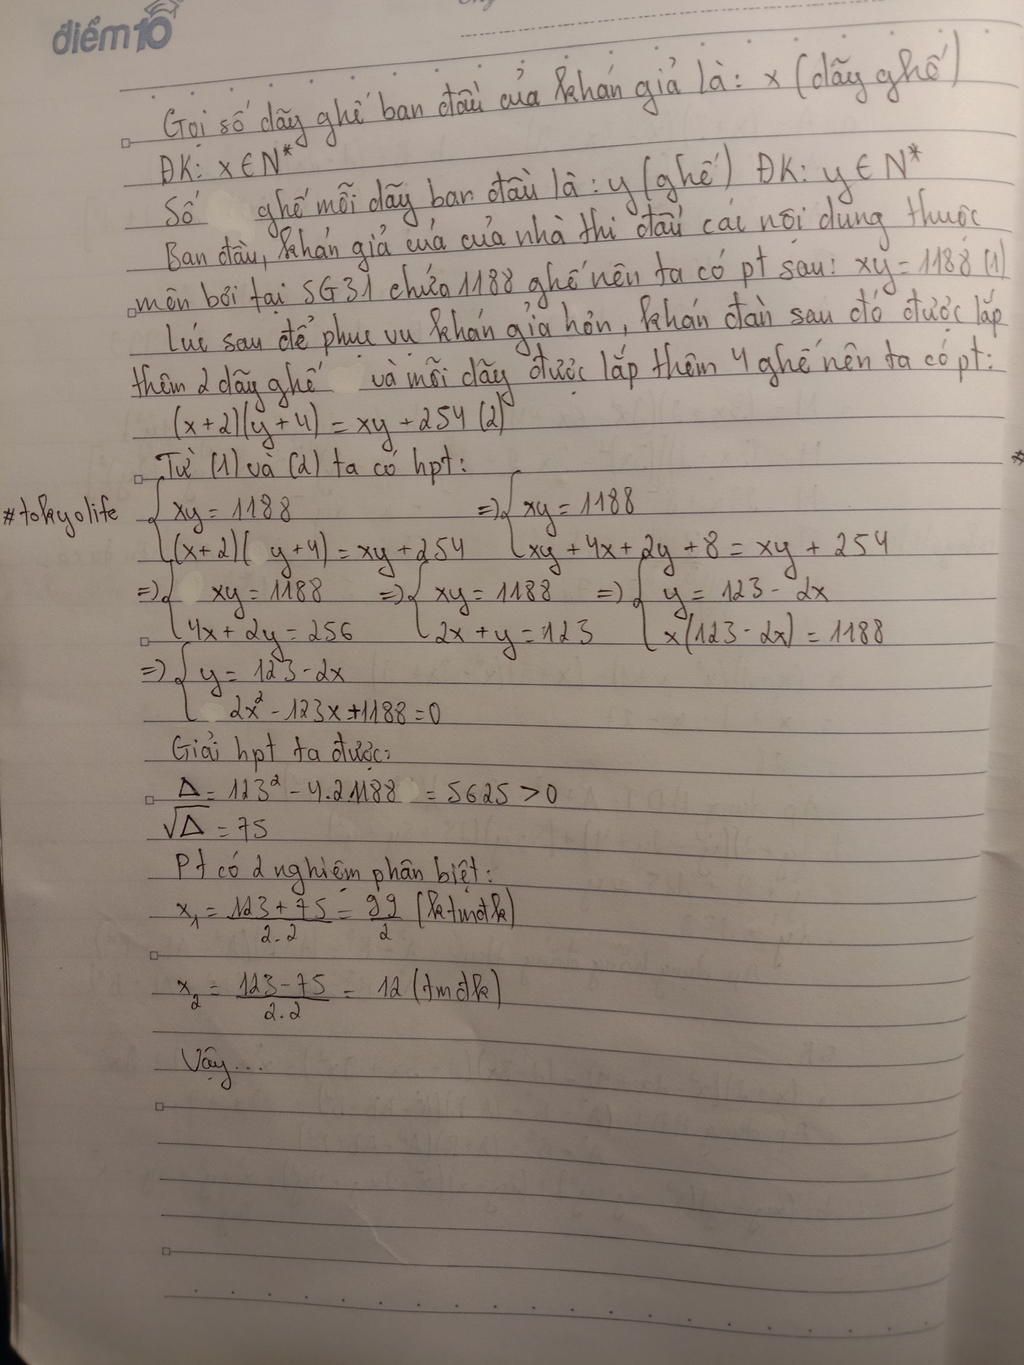 điểm10
Gọi số dãy ghế ban đầu của khán giả là: x (dãy ghế)
ĐK: x ∈ N*
Số ghế mỗi dãy ban đầu là: y (ghế) ĐK: y ∈ N*
Ban đầu, khán giả của của nhà thi đấu các nội dung thuộc
môn bơi tại SG31 chứa 1188 ghế nên ta có pt sau: xy = 1188 (1)
Lúc sau để phục vụ khán giả hơn, khán đài sau đó được lắp
thêm 2 dãy ghế và mỗi dãy được lắp thêm 4 ghế nên ta có pt:
(x+2)(y+4) = xy + 254 (2)
Từ (1) và (2) ta có hpt:
#tokyolife { xy = 1188 => { xy = 1188
(x+2)(y+4) = xy + 254 xy + 4x + 2y + 8 = xy + 254
=> { xy = 1188 => { xy = 1188 => { y = 123 - 2x
4x + 2y = 256 2x + y = 123 x(123 - 2x) = 1188
=> { y = 123 - 2x
2x² - 123x + 1188 = 0
Giải hpt ta được:
Δ = 123² - 4.2.1188 = 5625 > 0
√Δ = 75
Pt có 2 nghiệm phân biệt:
x₁ = (123 + 75)/(2.2) = 99/2 (ktmđk)
x₂ = (123 - 75)/(2.2) = 12 (tmđk)
Vậy...